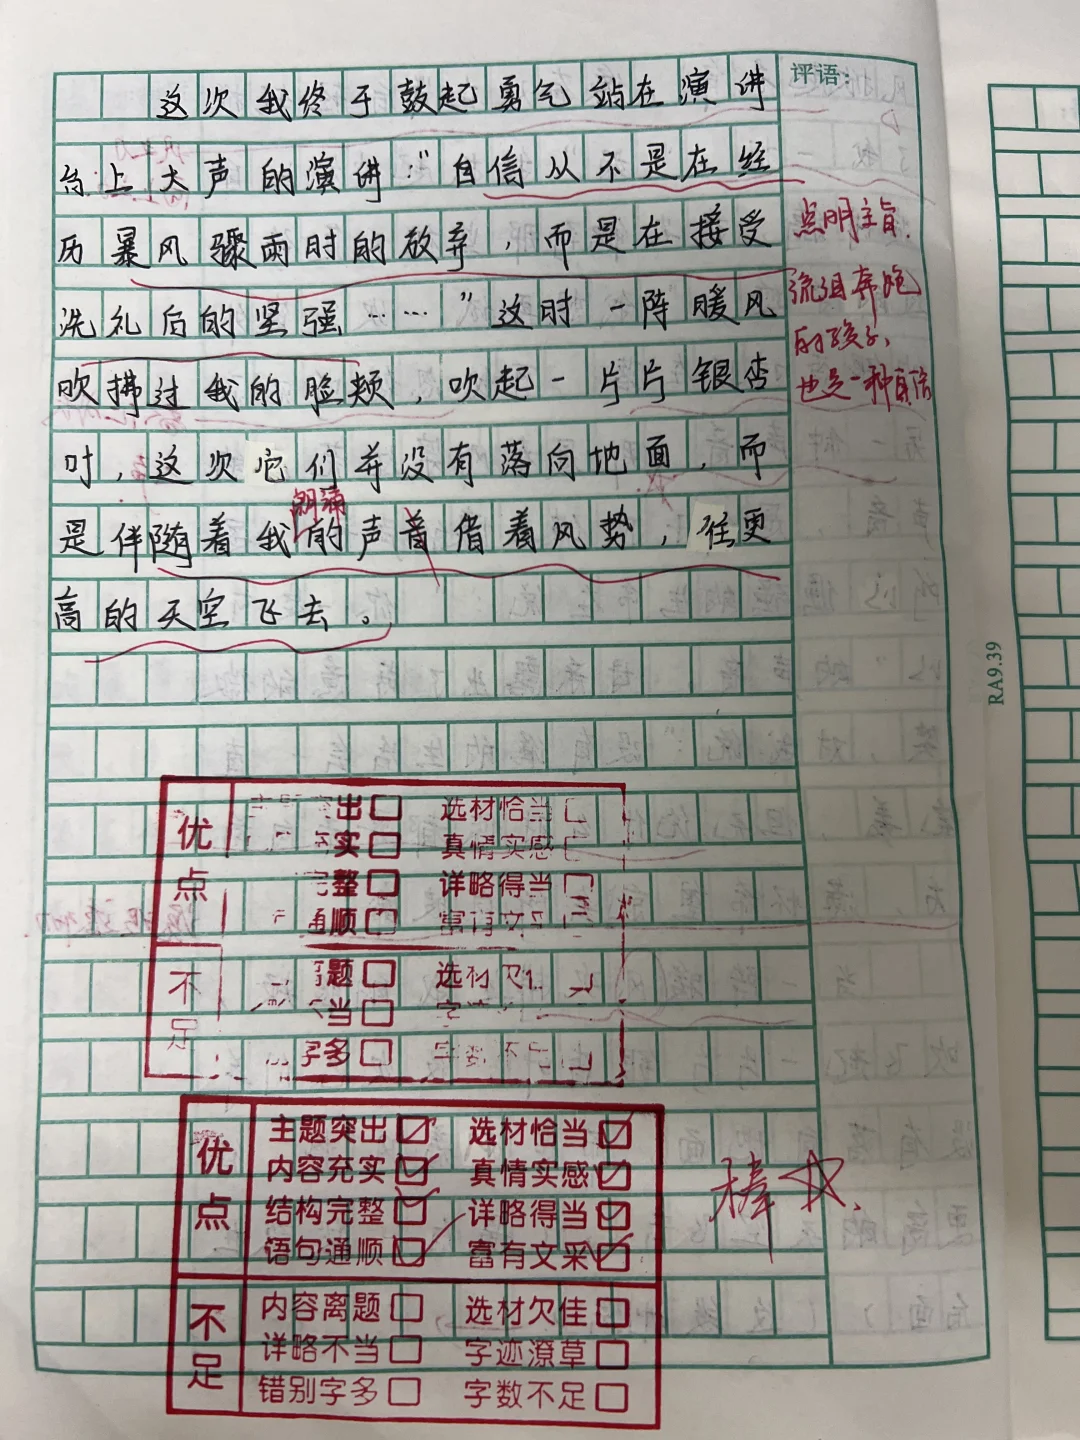 评语：
这次我终于鼓起勇气站在演讲
台上大声的演讲：“自信从不是在经
历暴风骤雨时的放弃，而是在接受
洗礼后的坚强……”这时一阵暖风
吹拂过我的脸颊，吹起一片片银杏
叶，这次它们并没有落向地面，而
是伴随着我的声音借着风势，往更
朗诵
高的天空飞去。
点明主旨，
的孩子，
也是一种自信
RA9.39
优点
出 选材恰当
实 真情实感
完整 详略得当
通顺
不足
题 选材
当
字多
优点
主题突出 选材恰当
内容充实 真情实感
结构完整 详略得当
语句通顺 富有文采
棒
不足
内容离题 选材欠佳
详略不当 字迹潦草
错别字多 字数不足